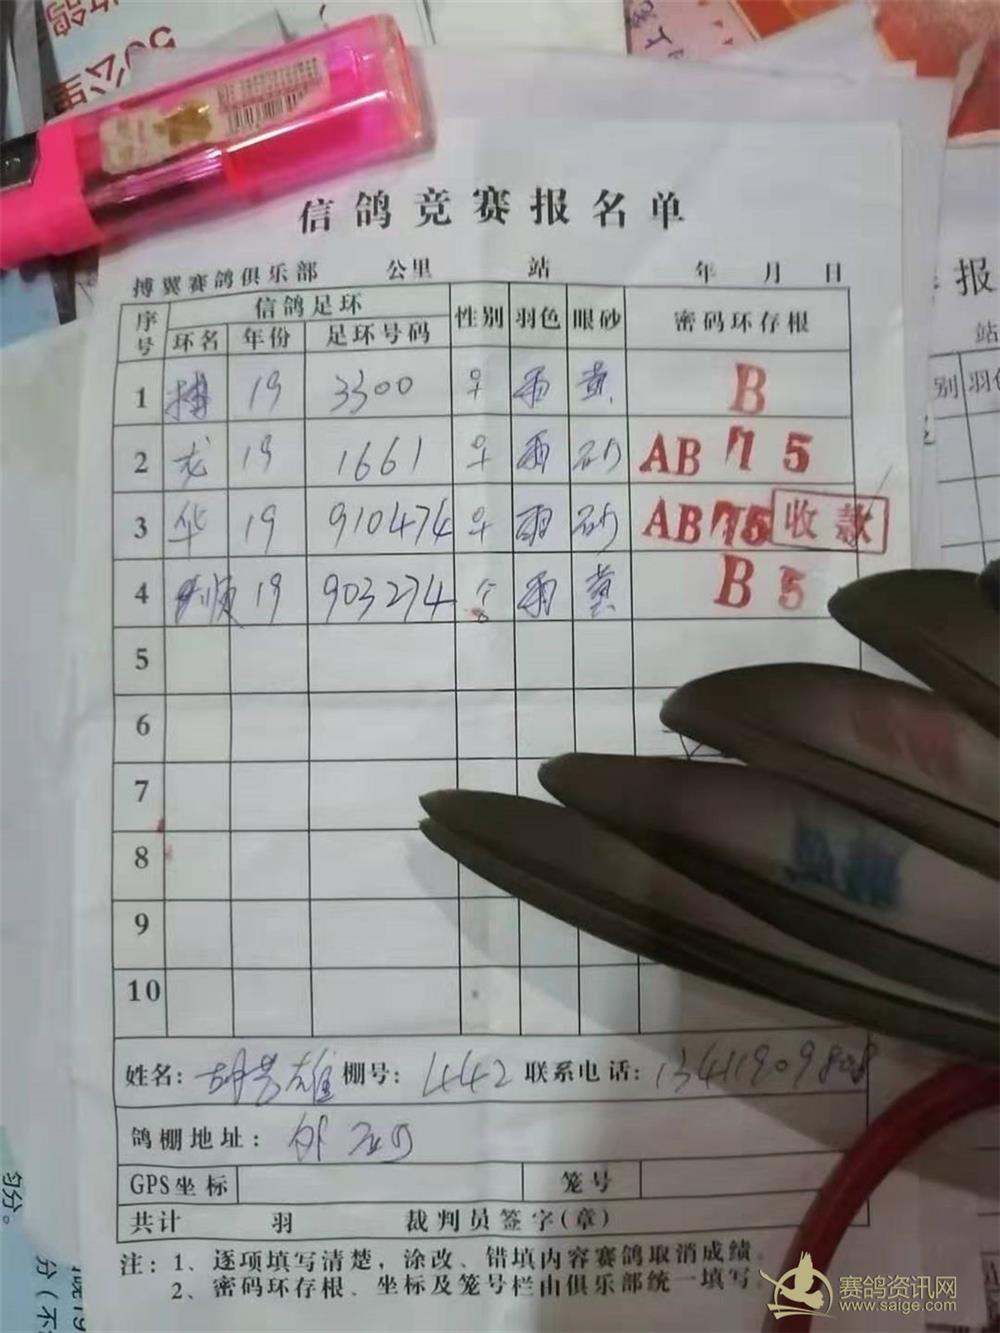 50公里
信鸽竞赛报名单
搏翼赛鸽俱乐部 公里 站 年 月 日
序号 信鸽足环 性别 羽色 眼砂 密码环存根
环名 年份 足环号码
1 搏 19 3300 早 雨 黄 B
2 龙 19 1661 早 雨 砂 AB 75
3 华 19 910474 早 雨 砂 AB 75 收款
4 顺 19 903274 雨 黄 B 5
5
6
7
8
9
10
姓名: 胡 雄 棚号: 442 联系电话: 13411909808
鸽棚地址:
GPS坐标 笼号
共计 羽 裁判员签字(章)
注: 1、逐项填写清楚，涂改、错填内容赛鸽取消成绩。
2、密码环存根、坐标及笼号栏由俱乐部统一填写
报
站
别 羽色
匀分。
分(不
赛鸽资讯网
www.saige.com